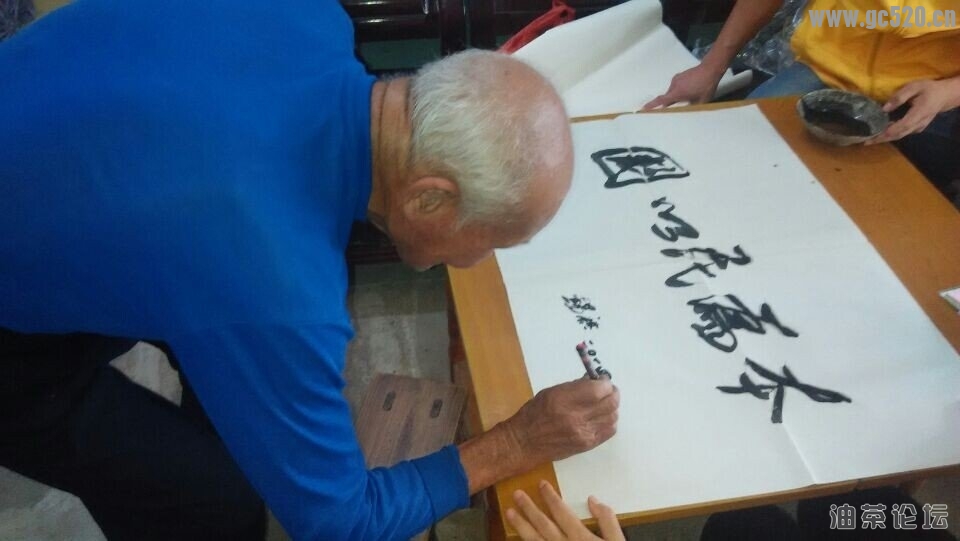 www.gc520.cn
國以民為本
油茶论坛